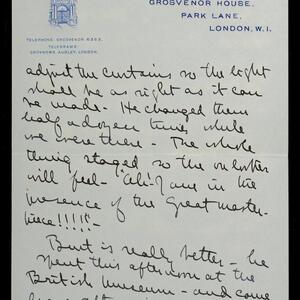 GROSVENOR HOUSE,
PARK LANE,
LONDON, W.I.
TELEPHONE: GROSVENOR 6363.
TELEGRAMS:
GROVHOWS, AUDLEY, LONDON.
adjust the curtains so the light
shall be as right as it can
be made. He changed them
half a dozen times while
we were there. The whole
thing staged so the onlooker
will feel - "Ah! I am in the
presence of the Great master-
piece!!!!!" -
Burt is really better - he
spent this afternoon at the
British Museum - and come